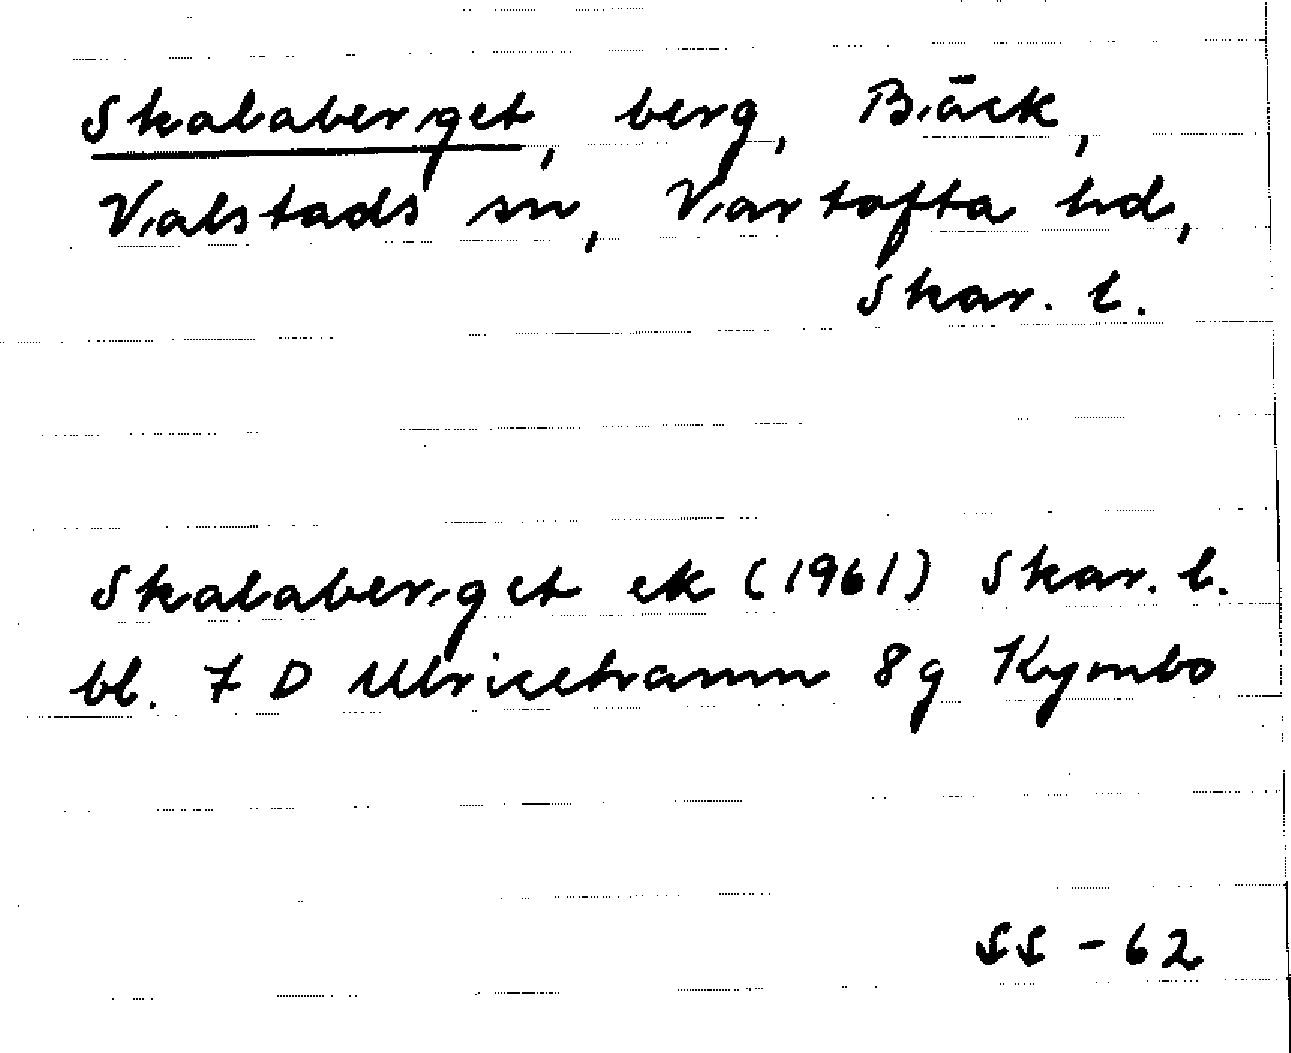 Skalaberget, berg, Bäck,
Valstads sn, Vartofta hd,
Skar. l.
Skalaberget ek (1961) Skar. l.
bl. 7 D Ulricehamn 8g Kymbo
SS - 62